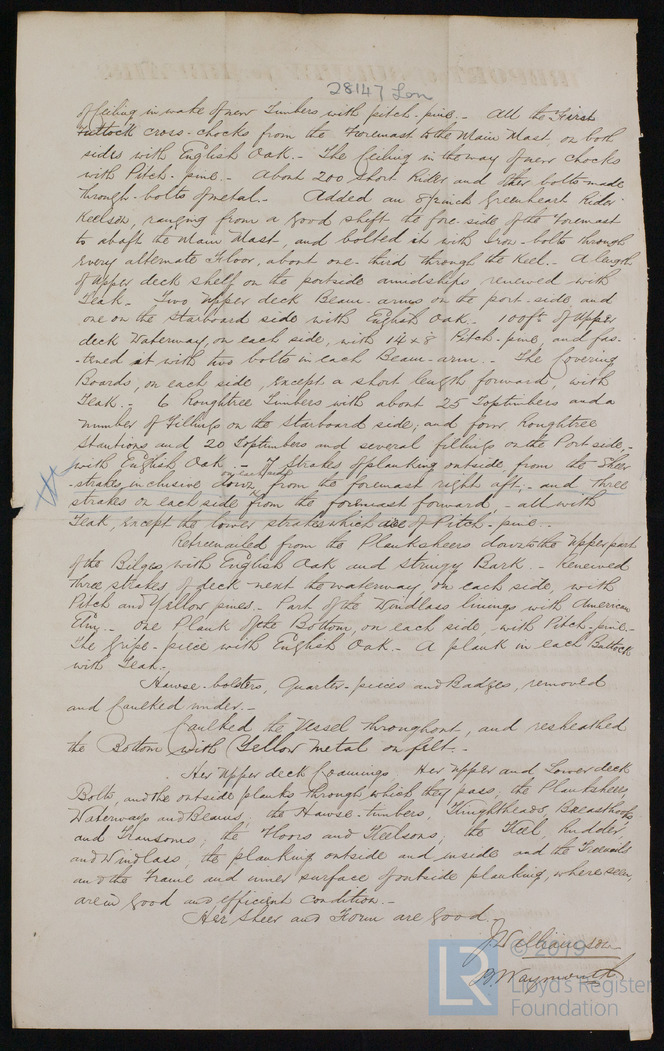 28147 Lon
of Ceiling in wake of new Timbers with pitch-pine. - All the First
Futtock cross-chocks from the Foremast to the Main Mast, on both
sides with English Oak. - The Ceiling in the way of new chocks
with Pitch-pine. - About 200 short Rider and other bolts made
through-bolts of metal. - Added an 8½ inch Greenheart Rider
Keelson, ranging from a good shift the fore-side of the Foremast
to abaft the Main Mast, and bolted it with Iron-bolts through
every alternate Floor, about one-third through the Keel. - A length
of upper deck shelf on the portside amidships, renewed with
Teak. - Two upper deck Beam-arms on the port-side and
one on the starboard side with English Oak. - 100ft of Upper
deck Waterway, on each side, with 14 x 8 Pitch-pine, and fas-
-tened it with two bolts in each Beam-arm. - The Covering
Boards, on each side, except a short length forward, with
Teak. - 6 Roughtree Timbers with about 25 Toptimbers and a
number of Fillings on the Starboard side; and four Roughtree
Stantions and 20 Toptimbers and several fillings on the Port side, -
with English Oak. - 7 Strakes of planking outside, from the Sheer
on each side
-strakes, inclusive down, from the foremast right aft, - and three
strakes on each side from the foremast forward, - all with
Teak, except the lower strakes which are of Pitch-pine. -
Retreenailed from the Planksheers down to the upper part
of the Bilges, with English Oak and Stringy Bark. - Renewed
three strakes of deck next the waterway, on each side, with
Pitch and Yellow pines. - Part of the Windlass linings with American
Elm. - One Plank of the Bottom, on each side, with Pitch-pine. -
The Gripe-piece with English Oak. - A plank in each Buttock
with Teak.
Hawse-bolsters, Quarter-pieces and Badges, removed
and Caulked under. -
Caulked the Vessel throughout, and resheathed
the Bottom with Yellow metal on felt. -
Her upper deck Coamings, Her Upper and Lower deck
Bolts, and the outside planks through which they pass, the Planksheers,
Waterways and Beams; the Hawse-timbers, Knightheads, Breasthooks
and Transoms; the Floors and Keelsons; the Keel, Rudder,
and Windlass, the planking outside and inside and the Treenails
and the Frame and inner surface of outside planking, where seen,
are in good and efficient condition. -
Her Sheer and Form are good.
J Williamson
B. Waymouth
© 2019
LR
Lloyd's Register
Foundation